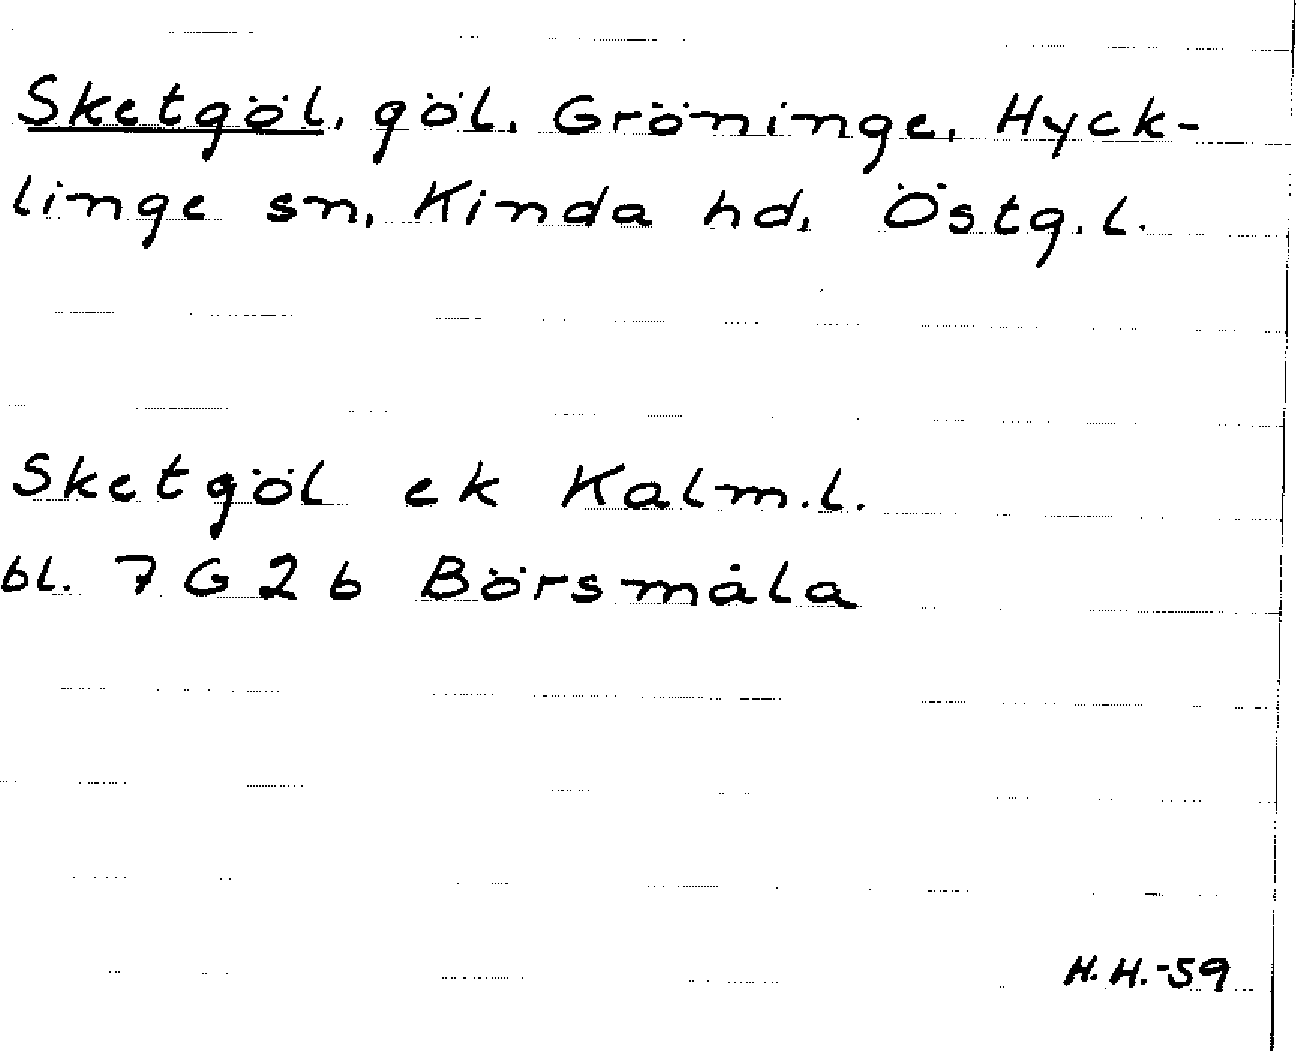 Sketgöl, göl, Gröninge, Hyck-
linge sn, Kinda hd, Östg.l.
Sketgöl ek Kalm.l.
bl. 7 G 2 b Börsmåla
H.H.-59